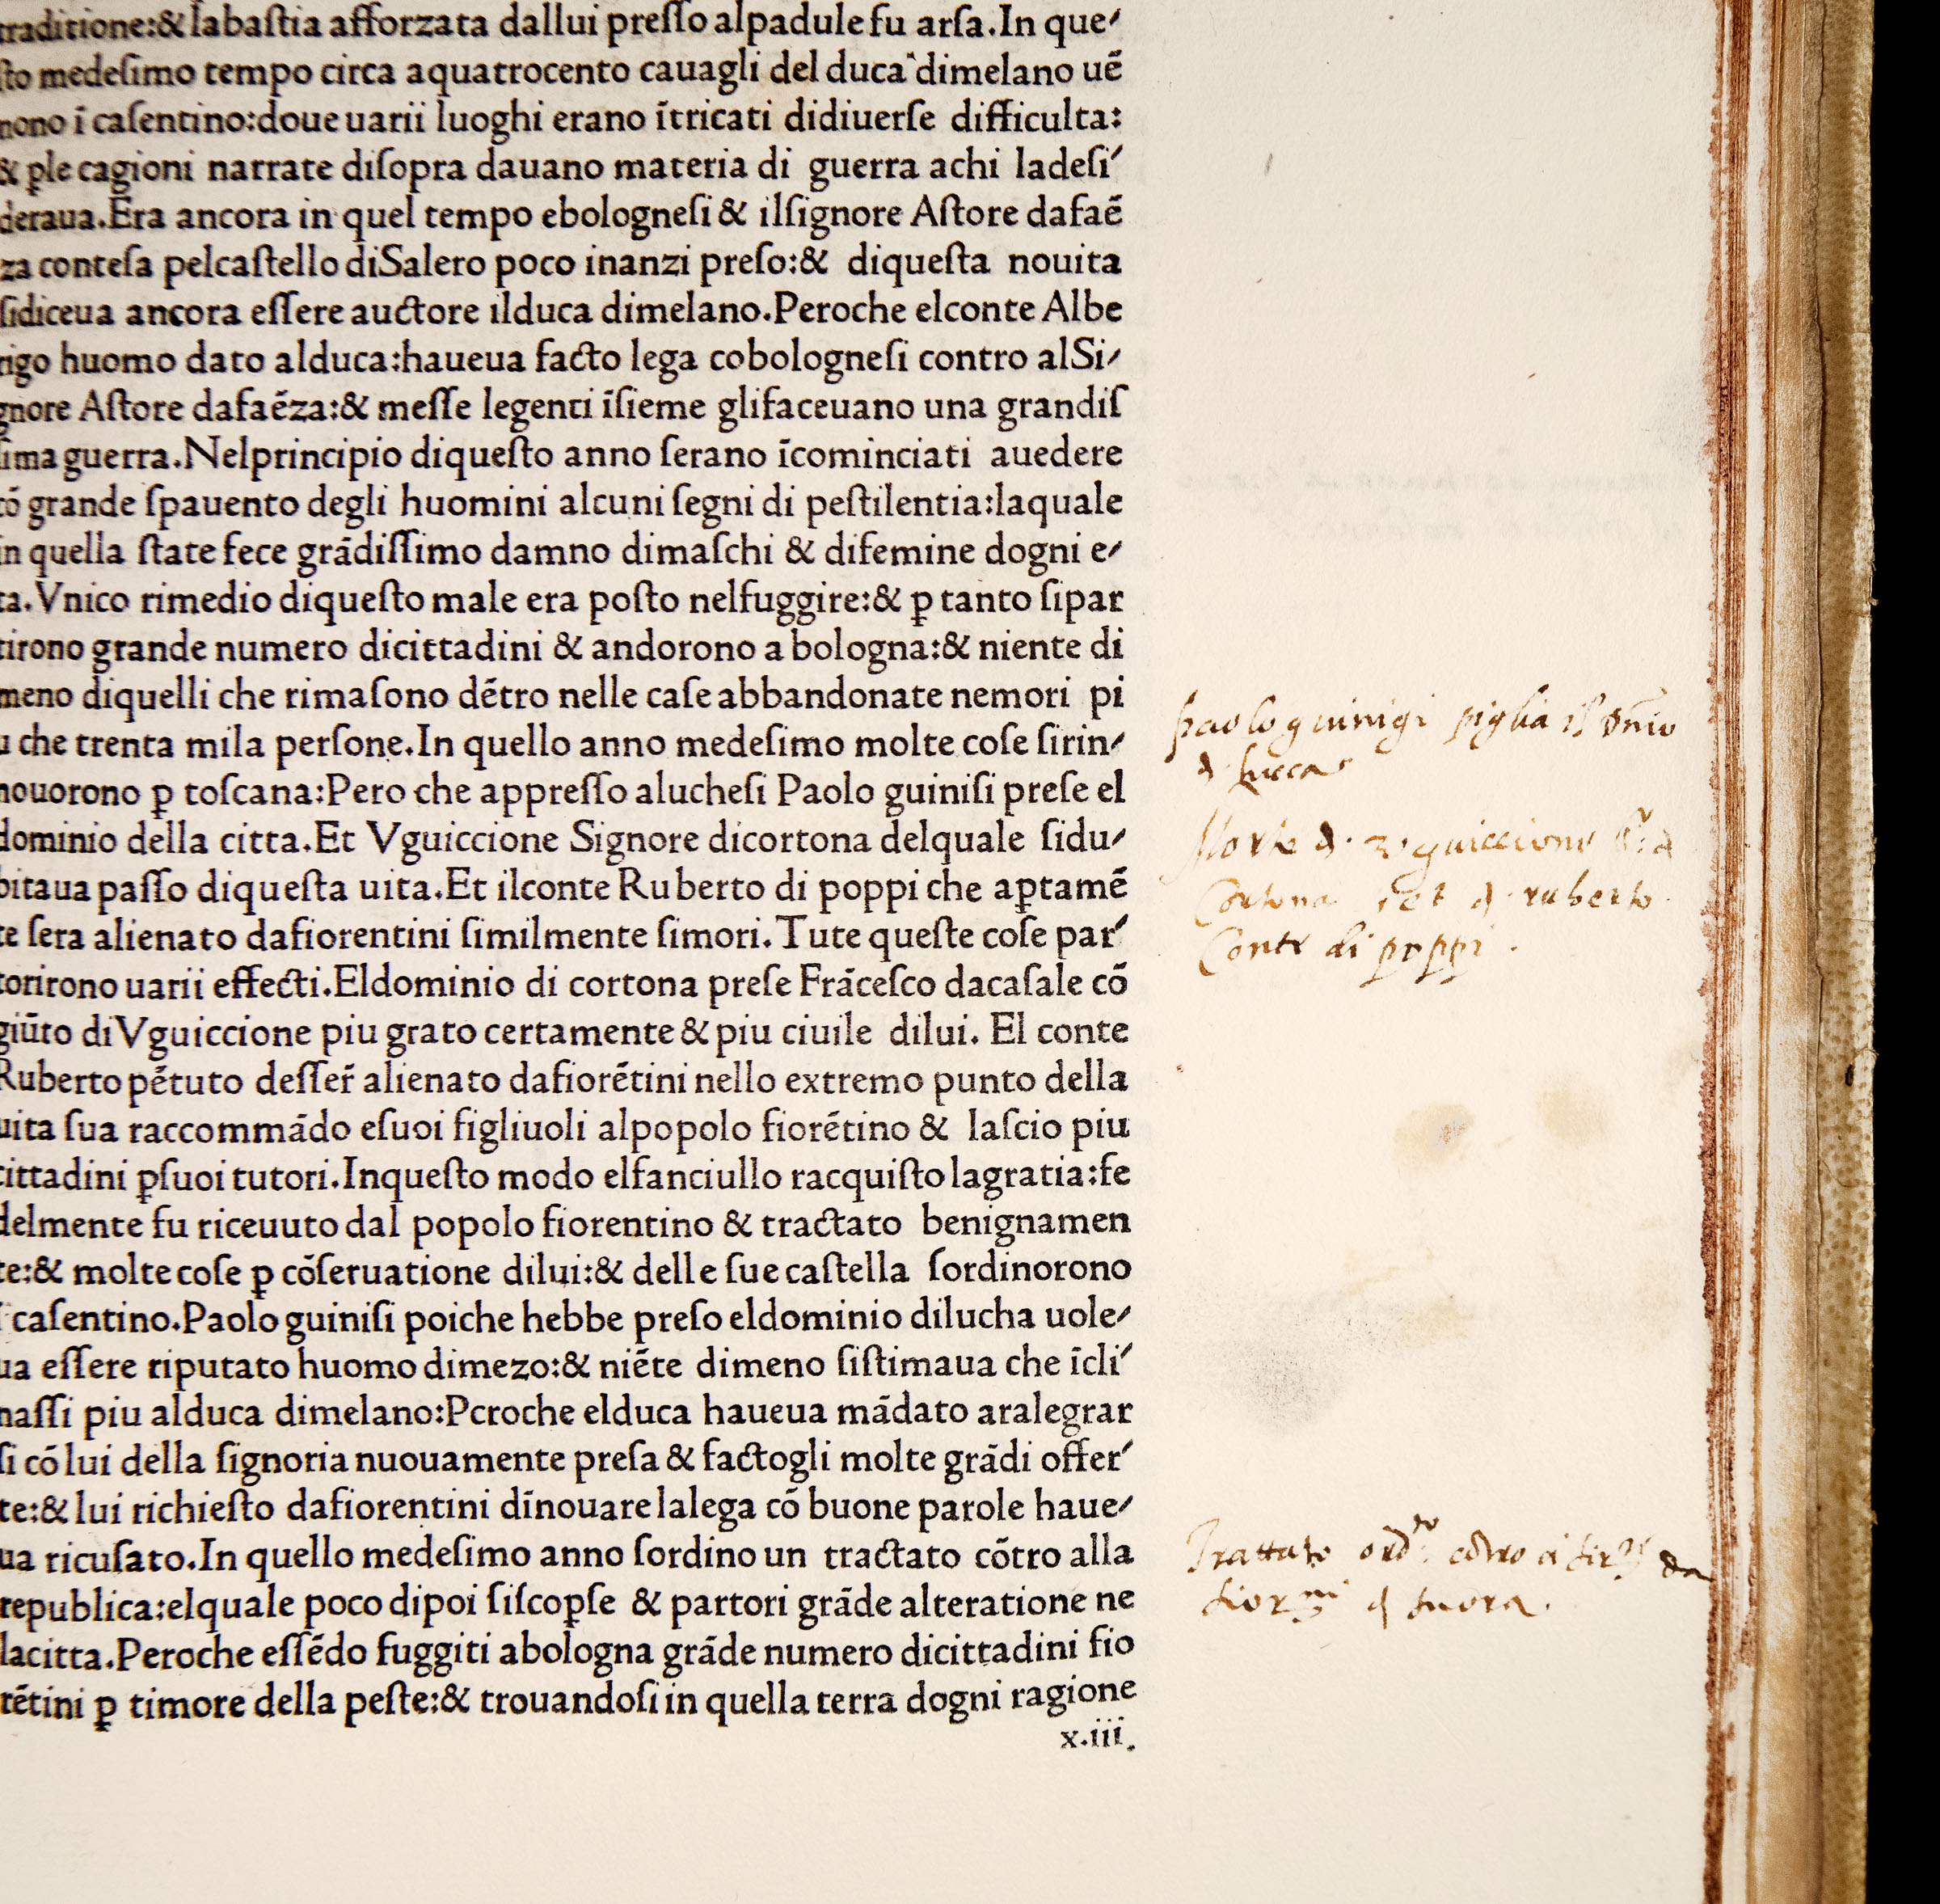 traditione:& labaſtia afforzata dallui preſſo alpadule fu arſa.In que⸗
ſto medeſimo tempo circa aquatrocento cauagli del duca dimelano uē
nono ī caſentino:doue uarii luoghi erano ītricati didiuerſe difficulta:
& ꝑle cagioni narrate diſopra dauano materia di guerra achi ladeſi⸗
deraua.Era ancora in quel tempo ebologneſi & ilſignore Aſtore dafaē
za conteſa pelcaſtello diSalero poco inanzi preſo:& diqueſta nouita
ſidiceua ancora eſſere auctore ilduca dimelano.Peroche elconte Albe
rigo huomo dato alduca:haueua facto lega cobologneſi contro alSi⸗
gnore Aſtore dafaēza:& meſſe legenti īſieme glifaceuano una grandiſ
ſima guerra.Nelprincipio diqueſto anno ſerano īcominciati auedere
cō grande ſpauento degli huomini alcuni ſegni di peſtilentia:laquale
in quella ſtate fece grādiſſimo damno dimaſchi & difemine dogni e⸗
ta.Vnico rimedio diqueſto male era poſto nelfuggire:& ꝑ tanto ſipar
tirono grande numero dicittadini & andorono a bologna:& niente di
meno diquelli che rimaſono dētro nelle caſe abbandonate nemori pi
u che trenta mila perſone.In quello anno medeſimo molte coſe ſirin⸗
nouorono ꝑ toſcana:Pero che appreſſo alucheſi Paolo guiniſi preſe el
dominio della citta.Et Vguiccione Signore dicortona delquale ſidu⸗
bitaua paſſo diqueſta uita.Et ilconte Ruberto di poppi che aꝑtamē
te ſera alienato dafiorentini ſimilmente ſimori.Tute queſte coſe par⸗
torirono uarii effecti.Eldominio di cortona preſe Frāceſco dacaſale cō
giūto diVguiccione piu grato certamente & piu ciuile dilui. El conte
Ruberto pētuto deſſer̄ alienato dafiorētini nello extremo punto della
uita ſua raccommādo eſuoi figliuoli alpopolo fiorētino & laſcio piu
cittadini ꝑſuoi tutori.Inqueſto modo elfanciullo racquiſto lagratia:fe
delmente fu riceuuto dal popolo fiorentino & tractato benignamen
te:& molte coſe ꝑ cōſeruatione dilui:& delle ſue caſtella ſordinorono
ī caſentino.Paolo guiniſi poiche hebbe preſo eldominio dilucha uole⸗
ua eſſere riputato huomo dimezo:& niēte dimeno ſiſtimaua che īcli⸗
naſſi piu alduca dimelano:Pcroche elduca haueua mādato aralegrar
ſi cō lui della ſignoria nuouamente preſa & factogli molte grādi offer⸗
te:& lui richieſto dafiorentini dīnouare lalega cō buone parole haue⸗
ua ricuſato.In quello medeſimo anno ſordino un tractato cōtro alla
republica:elquale poco dipoi ſiſcoꝑſe & partori grāde alteratione ne
lacitta.Peroche eſſēdo fuggiti abologna grāde numero dicittadini fio
rētini ꝑ timore della peſte:& trouandoſi in quella terra dogni ragione
x.iii.
paolo guinigi piglia il dn̄io
d. lucca
Morte d. uguiccione
Cortona et d. ruberto
Conte di poppi.
Trattato ord.to cōtro a da
fior.ni d fuora.